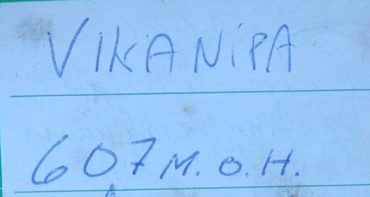 VIKANiPA
607 M. O. H.